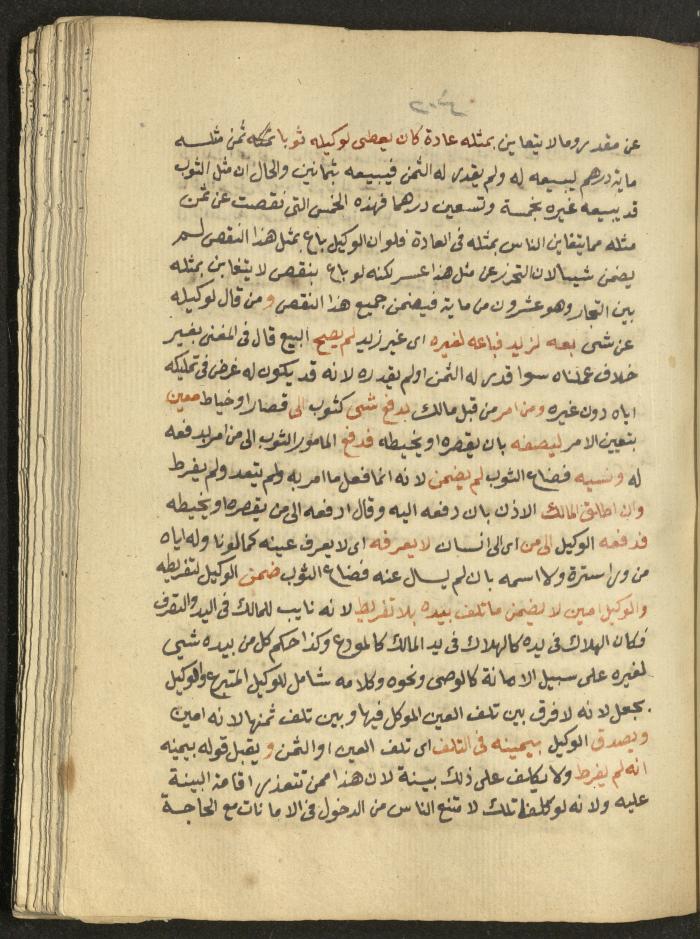 عن مقدر وما لا يتغابن بمثله عادة كان يعطى لوكيله ثوبا ثمنه ثمن مثله
ماية درهم ليبيعه له ولم يقدر له الثمن فيبيعه بثمانين والحال ان مثل الثوب
قد يبيعه غيره بخمسة وتسعين درهما فهذه الخمس التى نقصت عن ثمن
مثله مما يتغابن الناس بمثله فى العادة فلو ان الوكيل باع بمثل هذا النقص لم
يضمن شيا لان التحرز عن مثل هذا عسر لكنه لو باع بنقص لا يتغابن بمثله
بين التجار وهو عشرون من ماية فيضمن جميع هذا النقص و من قال لوكيله
عن شى بعه لزيد فباعه لغيره اى غير زيد لم يصح البيع قال فى المغنى بغير
خلاف علمناه سوا قدر له الثمن او لم يقدره لانه قد يكون له غرض فى تمليكه
اياه دون غيره ومن امر من قبل مالك بدفع شى كثوب الى قصار او خياط معين
بتعيين الامر ليصنعه بان يقصره او يخيطه فدفع المامور الثوب الى من امر بدفعه
له ونسيه فضاع الثوب لم يضمن لانه انما فعل ما امر به ولم يتعد ولم يفرط
وان اطلق المالك الاذن بان دفعه اليه وقال ادفعه الى من يقصره او يخيطه
فدفعه الوكيل الى من اى الى انسان لا يعرفه اى لا يعرف عينه كما لو ناوله اياه
من ورا سترة ولا اسمه بان لم يسال عنه فضاع الثوب ضمن الوكيل لتفريطه
والوكيل امين لا يضمن ما تلف بيده بلا تفريط لانه نايب للمالك فى اليد والتصرف
فكان الهلاك فى يده كالهلاك فى يد المالك كالمودع وكذا حكم كل من بيده شى
لغيره على سبيل الامانة كالوصى ونحوه وكلامه شامل للوكيل المتبرع والوكيل
بجعل لانه لا فرق بين تلف العين الموكل فيها وبين تلف ثمنها لانه امين
ويصدق الوكيل بيمينه فى التلف اى تلف العين او الثمن و يقبل قوله بيمينه
انه لم يفرط ولا يكلف على ذلك بينة لان هذا مما تتعذر اقامة البينة
عليه ولانه لو كلف ذلك لامتنع الناس من الدخول فى الامانات مع الحاجة